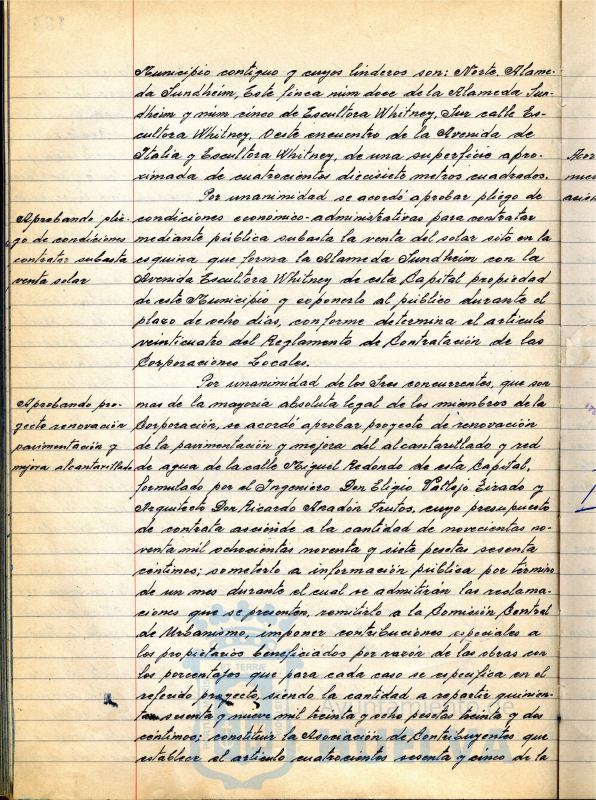 Municipio contiguo y cuyos linderos son: Norte, Alame-
da Sundheim, Este finca núm doce de la Alameda Sun-
dheim y núm cinco de Escultora Whitney, Sur calle Es-
cultora Whitney, Oeste encuentro de la Avenida de
Italia y Escultora Whitney, de una superficie apro-
ximada de cuatrocientos diecisiete metros cuadrados.
Aprobando plie-
go de condiciones
contratar subasta
venta solar
Por unanimidad se acordó aprobar pliego de
condiciones económico-administrativas para contratar
mediante pública subasta la venta del solar sito en la
esquina que forma la Alameda Sundheim con la
Avenida Escultora Whitney de esta Capital propiedad
de este Municipio y exponerlo al público durante el
plazo de ocho días, conforme determina el artículo
veinticuatro del Reglamento de Contratación de las
Corporaciones Locales.
Aprobando pro-
yecto renovación
pavimentación y
mejora alcantarillado
Por unanimidad de los Sres concurrentes, que son
mas de la mayoría absoluta legal de los miembros de la
Corporación, se acordó aprobar proyecto de renovación
de la pavimentación y mejora del alcantarillado y red
de agua de la calle Miguel Redondo de esta Capital,
formulado por el Ingeniero Don Eligio Vallejo Tirado y
Arquitecto Don Ricardo Anadón Frutos, cuyo presupuesto
de contrata asciende a la cantidad de novecientas no-
venta mil ochocientas noventa y siete pesetas sesenta
céntimos; someterlo a información pública por término
de un mes durante el cual se admitirán las reclama-
ciones que se presenten, remitirlo a la Comisión Central
de Urbanismo, imponer contribuciones especiales a
los propietarios beneficiados por razón de las obras con
los porcentajes que para cada caso se especifica en el
referido proyecto, siendo la cantidad a repartir quinien-
tas sesenta y nueve mil treinta y ocho pesetas treinta y dos
céntimos; constituir la Asociación de Contribuyentes que
establece el artículo cuatrocientos sesenta y cinco de la
Ayuntamiento de
HUELVA